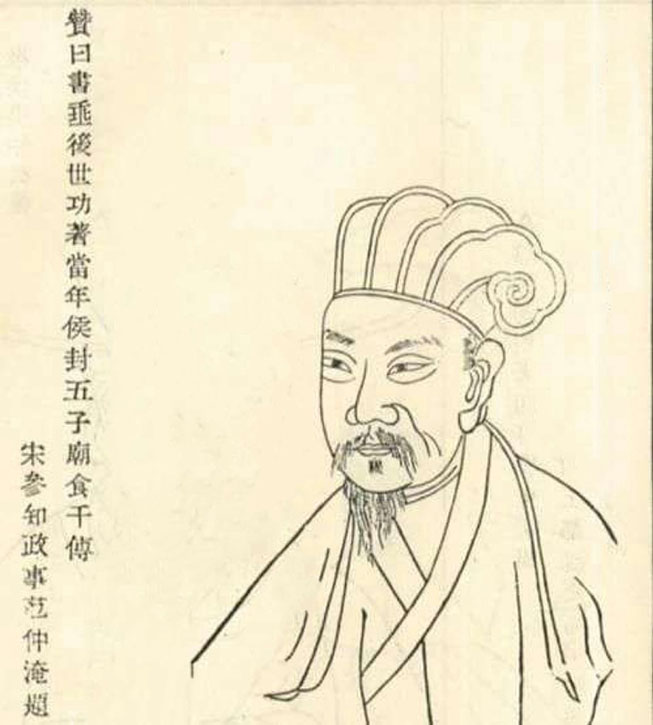 贊曰書垂後世功著當年侯封五子廟食千傳
宋參知政事范仲淹題